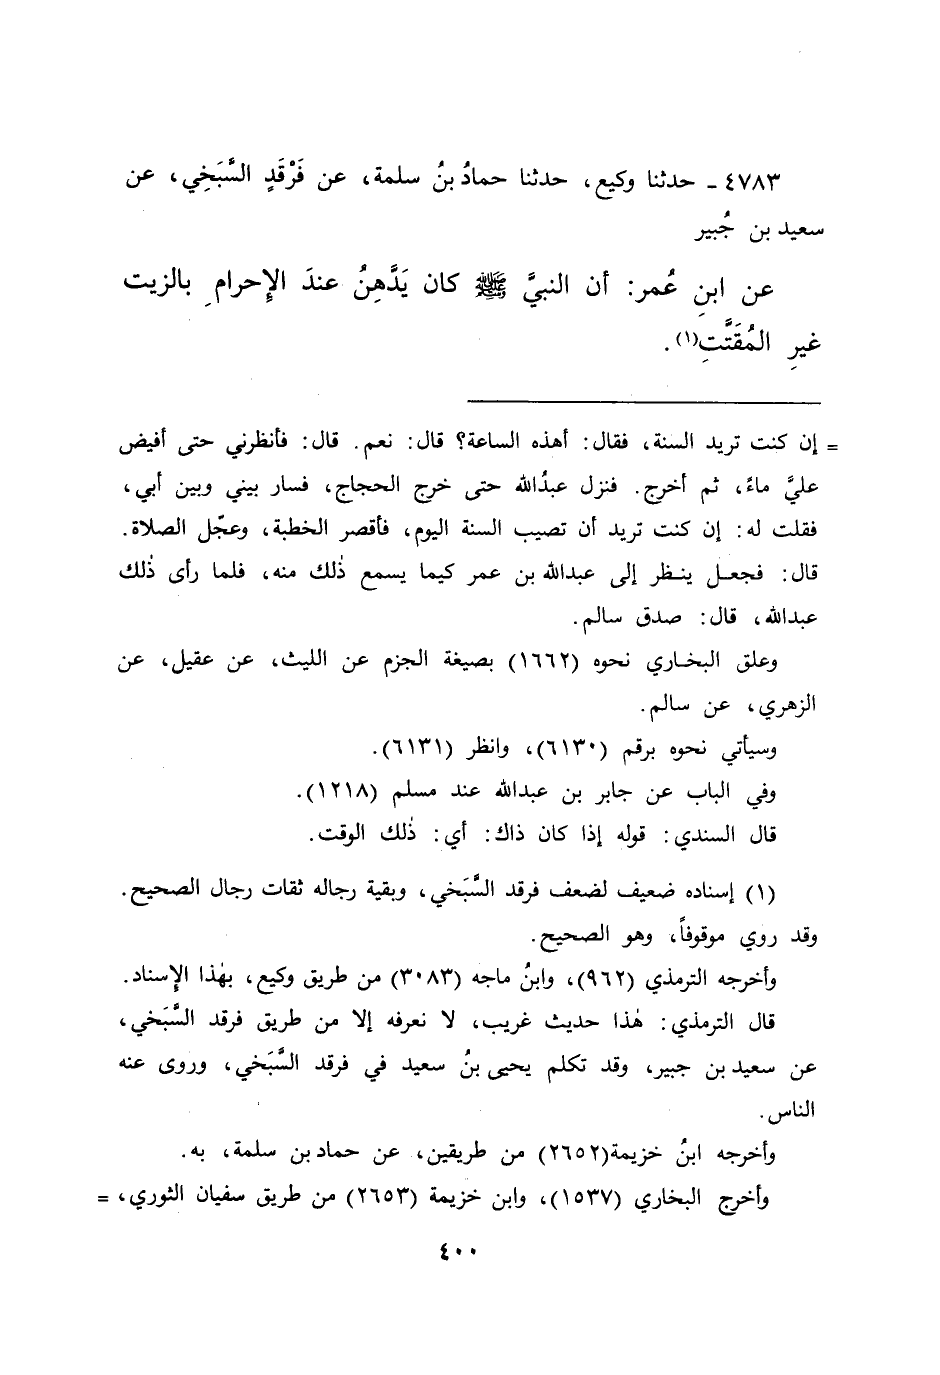 ٤٧٨٣ ـ حدثنا وكيع، حدثنا حمادُ بنُ سلمة، عن فَرْقَدٍ السَّبَخِي، عن
سعيد بن جُبير
عن ابنِ عُمر: أن النبيَّ ﷺ كان يَدَّهِنُ عندَ الإِحرامِ بالزيت
غيرِ المُقَتَّتِ(١).
= إن كنت تريد السنة، فقال: أهذه الساعة؟ قال: نعم. قال: فأنظرني حتى أفيض
عليَّ ماءً، ثم أخرج. فنزل عبدُالله حتى خرج الحجاج، فسار بيني وبين أبي،
فقلت له: إن كنت تريد أن تصيب السنة اليوم، فأقصر الخطبة، وعجّل الصلاة.
قال: فجعل ينظر إلى عبدالله بن عمر كيما يسمع ذٰلك منه، فلما رأى ذٰلك
عبدالله، قال: صدق سالم.
وعلق البخاري نحوه (١٦٦٢) بصيغة الجزم عن الليث، عن عقيل، عن
الزهري، عن سالم.
وسيأتي نحوه برقم (٦١٣٠)، وانظر (٦١٣١).
وفي الباب عن جابر بن عبدالله عند مسلم (١٢١٨).
قال السندي: قوله إذا كان ذاك: أي: ذٰلك الوقت.
(١) إسناده ضعيف لضعف فرقد السَّبَخي، وبقية رجاله ثقات رجال الصحيح.
وقد روي موقوفاً، وهو الصحيح.
وأخرجه الترمذي (٩٦٢)، وابنُ ماجه (٣٠٨٣) من طريق وكيع، بهٰذا الإسناد.
قال الترمذي: هٰذا حديث غريب، لا نعرفه إلا من طريق فرقد السَّبَخي،
عن سعيد بن جبير، وقد تكلم يحيى بنُ سعيد في فرقد السَّبَخي، وروى عنه
الناس.
وأخرجه ابنُ خزيمة(٢٦٥٢) من طريقين، عن حماد بن سلمة، به.
وأخرج البخاري (١٥٣٧)، وابن خزيمة (٢٦٥٣) من طريق سفيان الثوري، =
٤٠٠